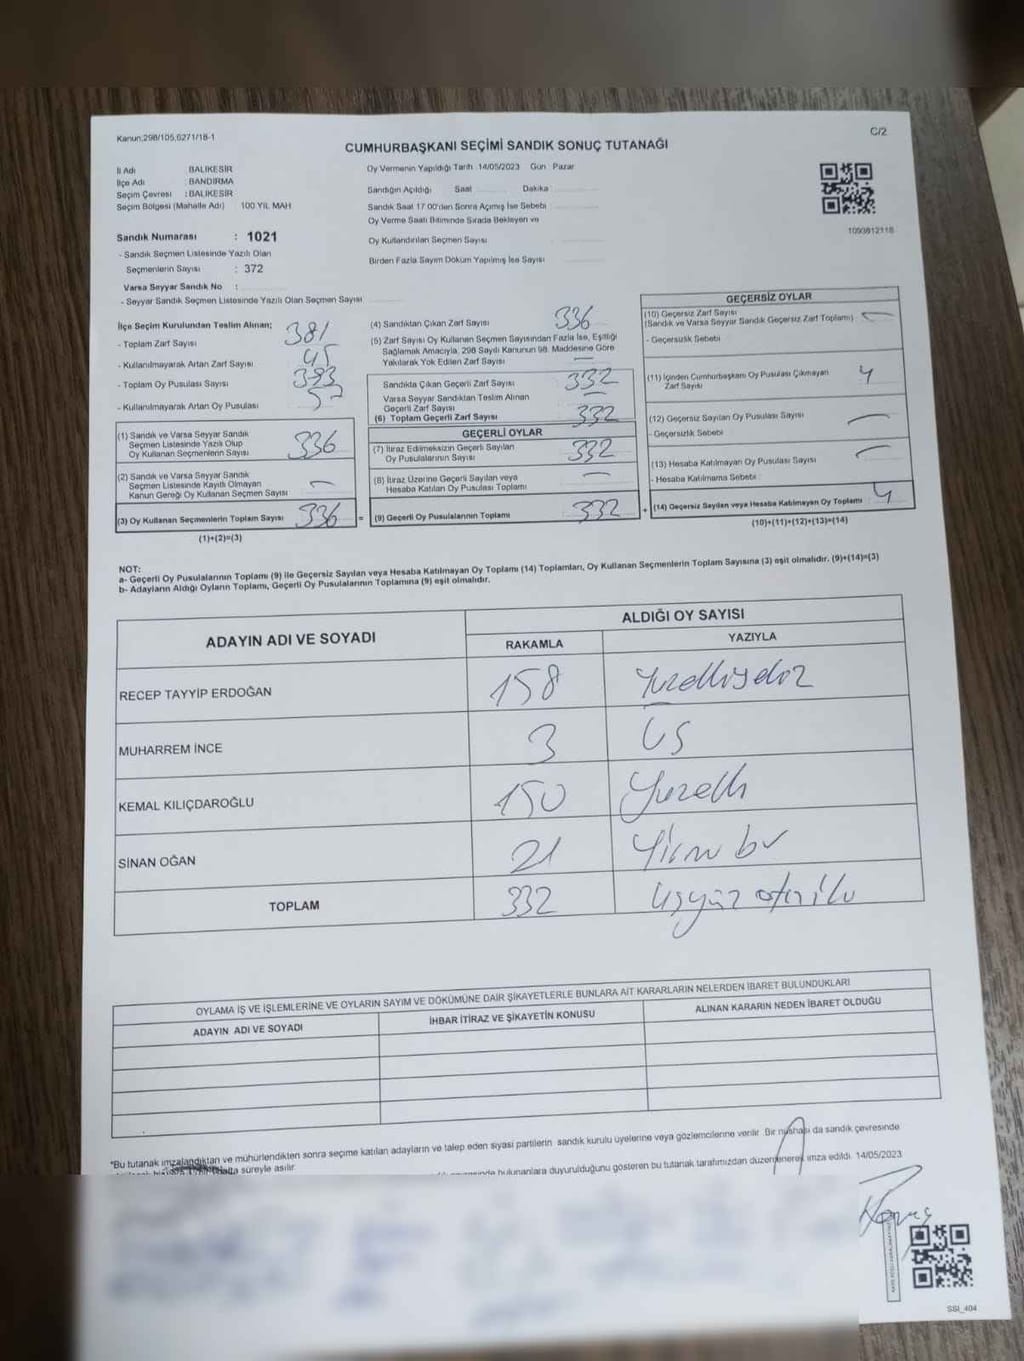 Kanun:298/105,6271/18-1
C/2
CUMHURBAŞKANI SEÇİMİ SANDIK SONUÇ TUTANAĞI
İl Adı BALIKESİR
İlçe Adı : BANDIRMA
Seçim Çevresi : BALIKESİR
Seçim Bölgesi (Mahalle Adı) 100 YIL MAH
Sandık Numarası : 1021
- Sandık Seçmen Listesinde Yazılı Olan
Seçmenlerin Sayısı : 372
Varsa Seyyar Sandık No :
- Seyyar Sandık Seçmen Listesinde Yazılı Olan Seçmen Sayısı
Oy Vermenin Yapıldığı Tarih 14/05/2023 Gün Pazar
Sandığın Açıldığı Saat Dakika
Sandık Saat 17.00'den Sonra Açılmış İse Sebebi
Oy Verme Saati Bitiminde Sırada Bekleyen ve
Oy Kullandırılan Seçmen Sayısı
Birden Fazla Sayım Döküm Yapılmış İse Sayısı
1093812118
İlçe Seçim Kurulundan Teslim Alınan;
- Toplam Zarf Sayısı 381
- Kullanılmayarak Artan Zarf Sayısı 45
- Toplam Oy Pusulası Sayısı 393
- Kullanılmayarak Artan Oy Pusulası
(1) Sandık ve Varsa Seyyar Sandık
Seçmen Listesinde Yazılı Olup
Oy Kullanan Seçmenlerin Sayısı 336
(2) Sandık ve Varsa Seyyar Sandık
Seçmen Listesinde Kayıtlı Olmayan
Kanun Gereği Oy Kullanan Seçmen Sayısı -
(3) Oy Kullanan Seçmenlerin Toplam Sayısı 336 =
(1)+(2)=(3)
(4) Sandıktan Çıkan Zarf Sayısı 336
(5) Zarf Sayısı Oy Kullanan Seçmen Sayısından Fazla İse, Eşitliği
Sağlamak Amacıyla, 298 Sayılı Kanunun 98. Maddesine Göre
Yakılarak Yok Edilen Zarf Sayısı -
Sandıkta Çıkan Geçerli Zarf Sayısı 332
Varsa Seyyar Sandıktan Teslim Alınan
Geçerli Zarf Sayısı -
(6) Toplam Geçerli Zarf Sayısı 332
GEÇERLİ OYLAR
(7) İtiraz Edilmeksizin Geçerli Sayılan
Oy Pusulalarının Sayısı 332
(8) İtiraz Üzerine Geçerli Sayılan veya
Hesaba Katılan Oy Pusulası Toplamı -
(9) Geçerli Oy Pusulalarının Toplamı 332 +
GEÇERSİZ OYLAR
(10) Geçersiz Zarf Sayısı
(Sandık ve Varsa Seyyar Sandık Geçersiz Zarf Toplamı) -
- Geçersizlik Sebebi
(11) İçinden Cumhurbaşkanı Oy Pusulası Çıkmayan
Zarf Sayısı 4
(12) Geçersiz Sayılan Oy Pusulası Sayısı -
- Geçersizlik Sebebi
(13) Hesaba Katılmayan Oy Pusulası Sayısı -
- Hesaba Katılmama Sebebi
(14) Geçersiz Sayılan veya Hesaba Katılmayan Oy Toplamı 4
(10)+(11)+(12)+(13)=(14)
NOT:
a- Geçerli Oy Pusulalarının Toplamı (9) ile Geçersiz Sayılan veya Hesaba Katılmayan Oy Toplamı (14) Toplamları, Oy Kullanan Seçmenlerin Toplam Sayısına (3) eşit olmalıdır. (9)+(14)=(3)
b- Adayların Aldığı Oyların Toplamı, Geçerli Oy Pusulalarının Toplamına (9) eşit olmalıdır.
ADAYIN ADI VE SOYADI ALDIĞI OY SAYISI
RAKAMLA YAZIYLA
RECEP TAYYİP ERDOĞAN 158 Yüzellisekiz
MUHARREM İNCE 3 üç
KEMAL KILIÇDAROĞLU 150 Yüzelli
SİNAN OĞAN 21 Yirmi bir
TOPLAM 332 üçyüz otuziki
OYLAMA İŞ VE İŞLEMLERİNE VE OYLARIN SAYIM VE DÖKÜMÜNE DAİR ŞİKAYETLERLE BUNLARA AİT KARARLARIN NELERDEN İBARET BULUNDUKLARI
ADAYIN ADI VE SOYADI İHBAR İTİRAZ VE ŞİKAYETİN KONUSU ALINAN KARARIN NEDEN İBARET OLDUĞU
*Bu tutanak imzalandıktan ve mühürlendikten sonra seçime katılan adayların ve talep eden siyasi partilerin sandık kurulu üyelerine veya gözlemcilerine verilir. Bir nushası da sandık çevresinde
hafta süreyle asılır. bulunanlara duyurulduğunu gösteren bu tutanak tarafımızdan düzenlenerek imza edildi. 14/05/2023
SSI_404